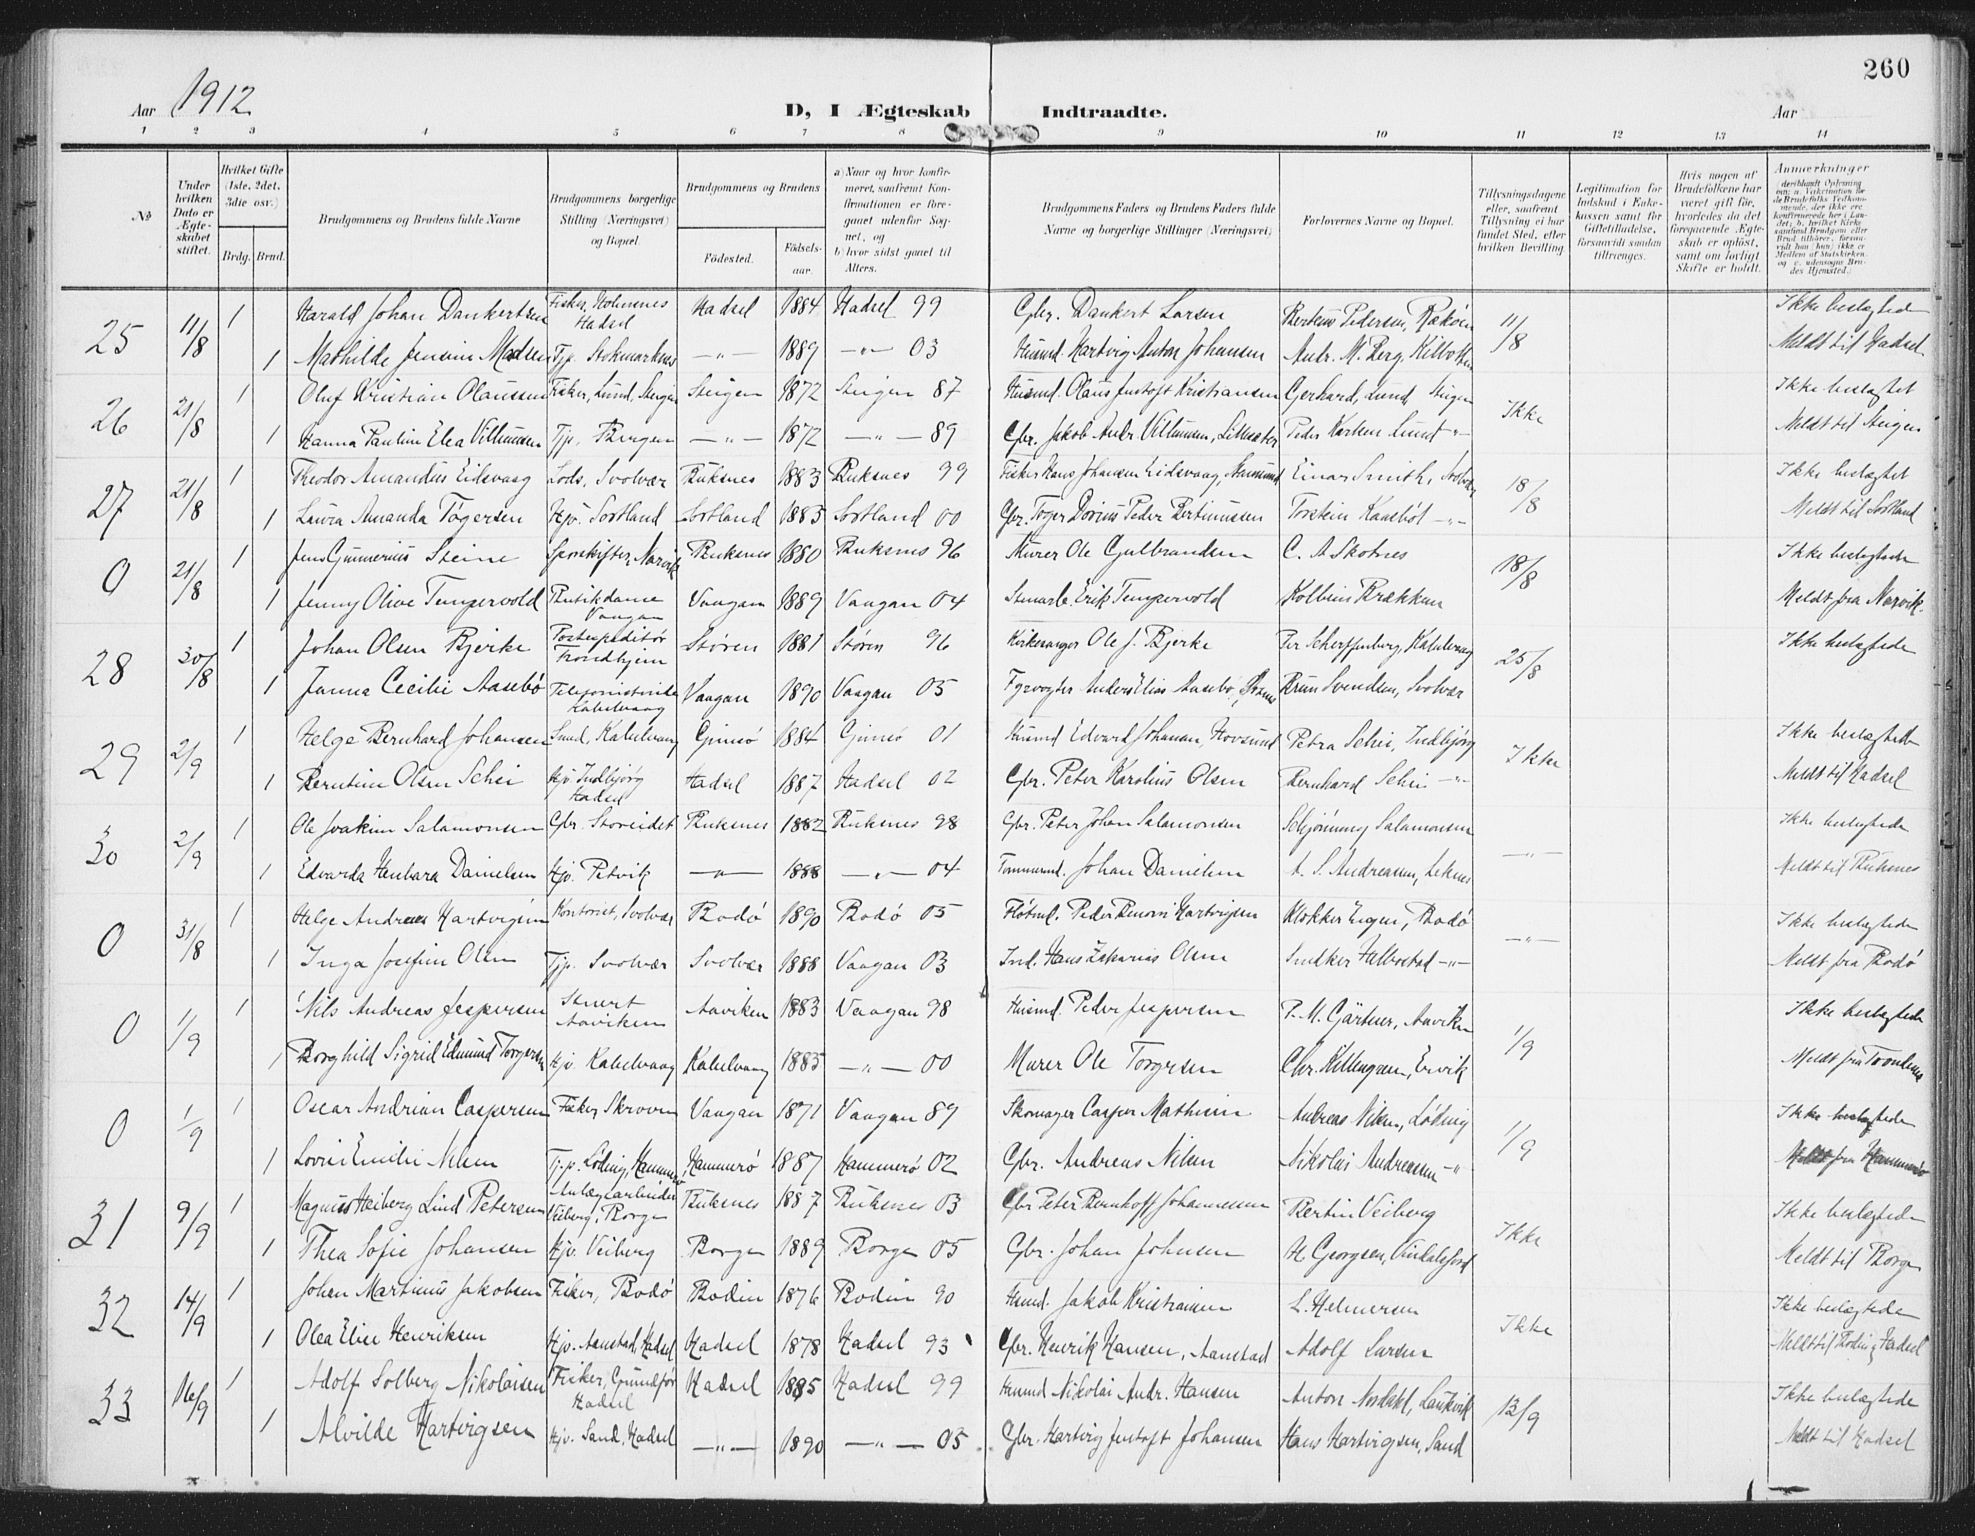 260
Aar 1912 D, I Ægteskab Indtraadte. Aar
1 2 3 4 5 6 7 8 9 10 11 12 13 14
№
Under hvilken Dato er Ægteskabet stiftet.
Hvilket Gifte (1ste, 2det, 3die osv.)
Brdg. Brud.
Brudgommens og Brudens fulde Navne
Brudgommens borgerlige Stilling (Næringsvei) og Bopæl.
Brudgommens og Brudens
Fødested. Fødselsaar.
a) Naar og hvor konfirmeret, saafremt Konfirmationen er foregaaet udenfor Sognet, og
b) hvor sidst gaaet til Alters.
Brudgommens Faders og Brudens Faders fulde Navne og borgerlige Stillinger (Næringsvei)
Forlovernes Navne og Bopæl.
Tillysningsdagene eller, saafremt Tillysning ei har fundet Sted, efter hvilken Bevilling
Legitimation for Indskud i Enkekassen samt for Giftetilladelse, forsaavidt saadan tiltrænges.
Hvis nogen af Brudefolkene har været gift før, hvorledes da det foregaaende Ægteskab er opløst, samt om lovligt Skifte er holdt.
Anmærkninger
25 11/8 1 Harald Johan Dankertsen Fisker, Holmsnes Hadsel Hadsel 1884 Hadsel 99 Gbr. Dankert Larsen Berteus Pedersen, 11/8 Ikke beslægtede
1 Mathilde Jensine Madsen Tjp. Stokmarknes -"- 1889 -"- 03 Husmd. Hartvig Anton Johansen Andr. M. Berg, Kilbotn Meldt til Hadsel
26 21/8 1 Oluf Kristian Olaussen Fisker, Lund, Steigen Steigen 1872 Steigen 87 Husmd. Olaus Jentoft Kristiansen Gerhard, Lund Steigen Ikke Ikke beslægtet
1 Hanna Pauline Elea Villumsen Tjp. -"- 1872 -"- 89 Gbr. Jakob Andr. Villumsen, Peder Lund -"- Meldt til Steigen
27 21/8 1 Theodor Amandus Eidsvaag Lods, Svolvær Buksnes 1883 Buksnes 99 Fisker Hans Johansen Eidsvaag, Einar Smith, Svolvær 18/8 Ikke beslægtet
1 Laura Amanda Tøgersen Hjv. Sortland Sortland 1885 Sortland 00 Gbr. Tøger Dorius Peder Bertinussen Torstein Kaasbøl -"- Meldt til Sortland
0 21/8 1 Jens Gunnerius Steine Sporskifter, Narvik Buksnes 1880 Buksnes 96 Murer Ole Gulbrandsen C. A Skotnes 18/8 Ikke beslægtede
1 Jenny Olive Tengervold Butikdame Vaagan Vaagan 1889 Vaagan 04 Erik Tengervold Kolbein Brækken Meldt fra Narvik.
28 30/8 1 Johan Olsen Bjerke Postexpeditør Trondhjem Støren 1881 Støren 96 Kirkesanger Ole J. Bjerke Per Scherffenberg, Kabelvaag 25/8 Ikke beslægtede
1 Janna Cecilie Aasebø Telefonistinde Kabelvaag Vaagan 1890 Vaagan 05 Fyrvogter Anders Elias Aasebø, Brun Svendsen, Svolvær
29 2/9 1 Helge Bernhard Johansen Smed, Kabelvaag Gimsø 1884 Gimsø 01 Husmd Edvard Johansen, Hovsund Petra Schei, Indbjørg Ikke Ikke beslægtede
1 Berntine Olsen Schei Hjv. Indbjørg Hadsel Hadsel 1887 Hadsel 02 Gbr. Peter Karolius Olsen Bernhard Schei -"- Meldt til Hadsel
30 2/9 1 Ole Joakim Salamonsen Gbr. Storeidet Buksnes 1882 Buksnes 98 Gbr. Peter Johan Salamonsen Salamonsen -"- Ikke beslægtede
1 Edvarda Henbara Danielsen Hjv. Petvik -"- 1888 -"- 04 Tømmermd. Johan Danielsen A. S. Andreassen, Leknes Meldt til Buksnes
0 31/8 1 Helge Andreas Hartvigsen Kontorist, Svolvær Bodø 1890 Bodø 05 Peder Benoni Hartvigsen Klokker Engen, Bodø -"- Ikke beslægtede
1 Inga Josefine Olsen Tjp. Svolvær Svolvær 1888 Vaagan 03 Ind. Hans Zakarias Olsen Snedker Halbostad -"- Meldt fra Bodø
0 1/9 1 Nils Andreas Jespersen Stuert Aaviken Aaviken 1883 Vaagan 98 Husmd. Peder Jespersen P. M. Gärtner, Aaviken 1/9 Ikke beslægtede
1 Borghild Sigrid Edmund Torgersen Hjv. Kabelvaag Kabelvaag 1885 -"- 00 Murer Ole Torgersen Chr. Killengren, Ervik Meldt fra Trondenes
0 1/9 1 Oscar Andrian Caspersen Fisker, Skroven Vaagan 1871 Vaagan 89 Skomager Casper Mathisen Andreas Nilsen, Løding 1/9 Ikke beslægtede
1 Lovise Emilie Nilsen Tjp. Løding, Hammerø Hammerø 1887 Hammerø 02 Gbr. Andreas Nilsen Nikolai Andreassen -"- Meldt fra Hammerø
31 9/9 1 Magnus Heiberg Lind Petersen Anlægsarbeider Veiberg, Borge Buksnes 1887 Buksnes 03 Gbr Peter Bernhoff Johannessen Bertin Veiberg Ikke Ikke beslægtede
1 Thea Sofie Johansen Hjv. Veiberg Borge 1889 Borge 05 Gbr. Johan Johnsen H. Georgsen, Meldt til Borge
32 14/9 1 Johan Martinus Jakobsen Fisker, Bodø Bodin 1876 Bodin 90 Husmd. Jakob Kristiansen L. Helmersen Ikke Ikke beslægtede
1 Olea Elise Henriksen Hjv. Aanstad, Hadsel Hadsel 1878 Hadsel 93 Gbr. Henrik Hansen, Aanstad Adolf Larsen Meldt til Bodin, Hadsel
33 16/9 1 Adolf Solberg Nikolaisen Fisker, Grundfør Hadsel Hadsel 1885 Hadsel 99 Husmd Nikolai Andr. Hansen Anton Nordahl, Laukvik 13/9 Ikke beslægtede
1 Alvilde Hartvigsen Hjv. Sand, Hadsel -"- 1890 -"- 05 Gbr. Hartvig Jentoft Johansen Hans Hartvigsen, Sand Meldt til Hadsel